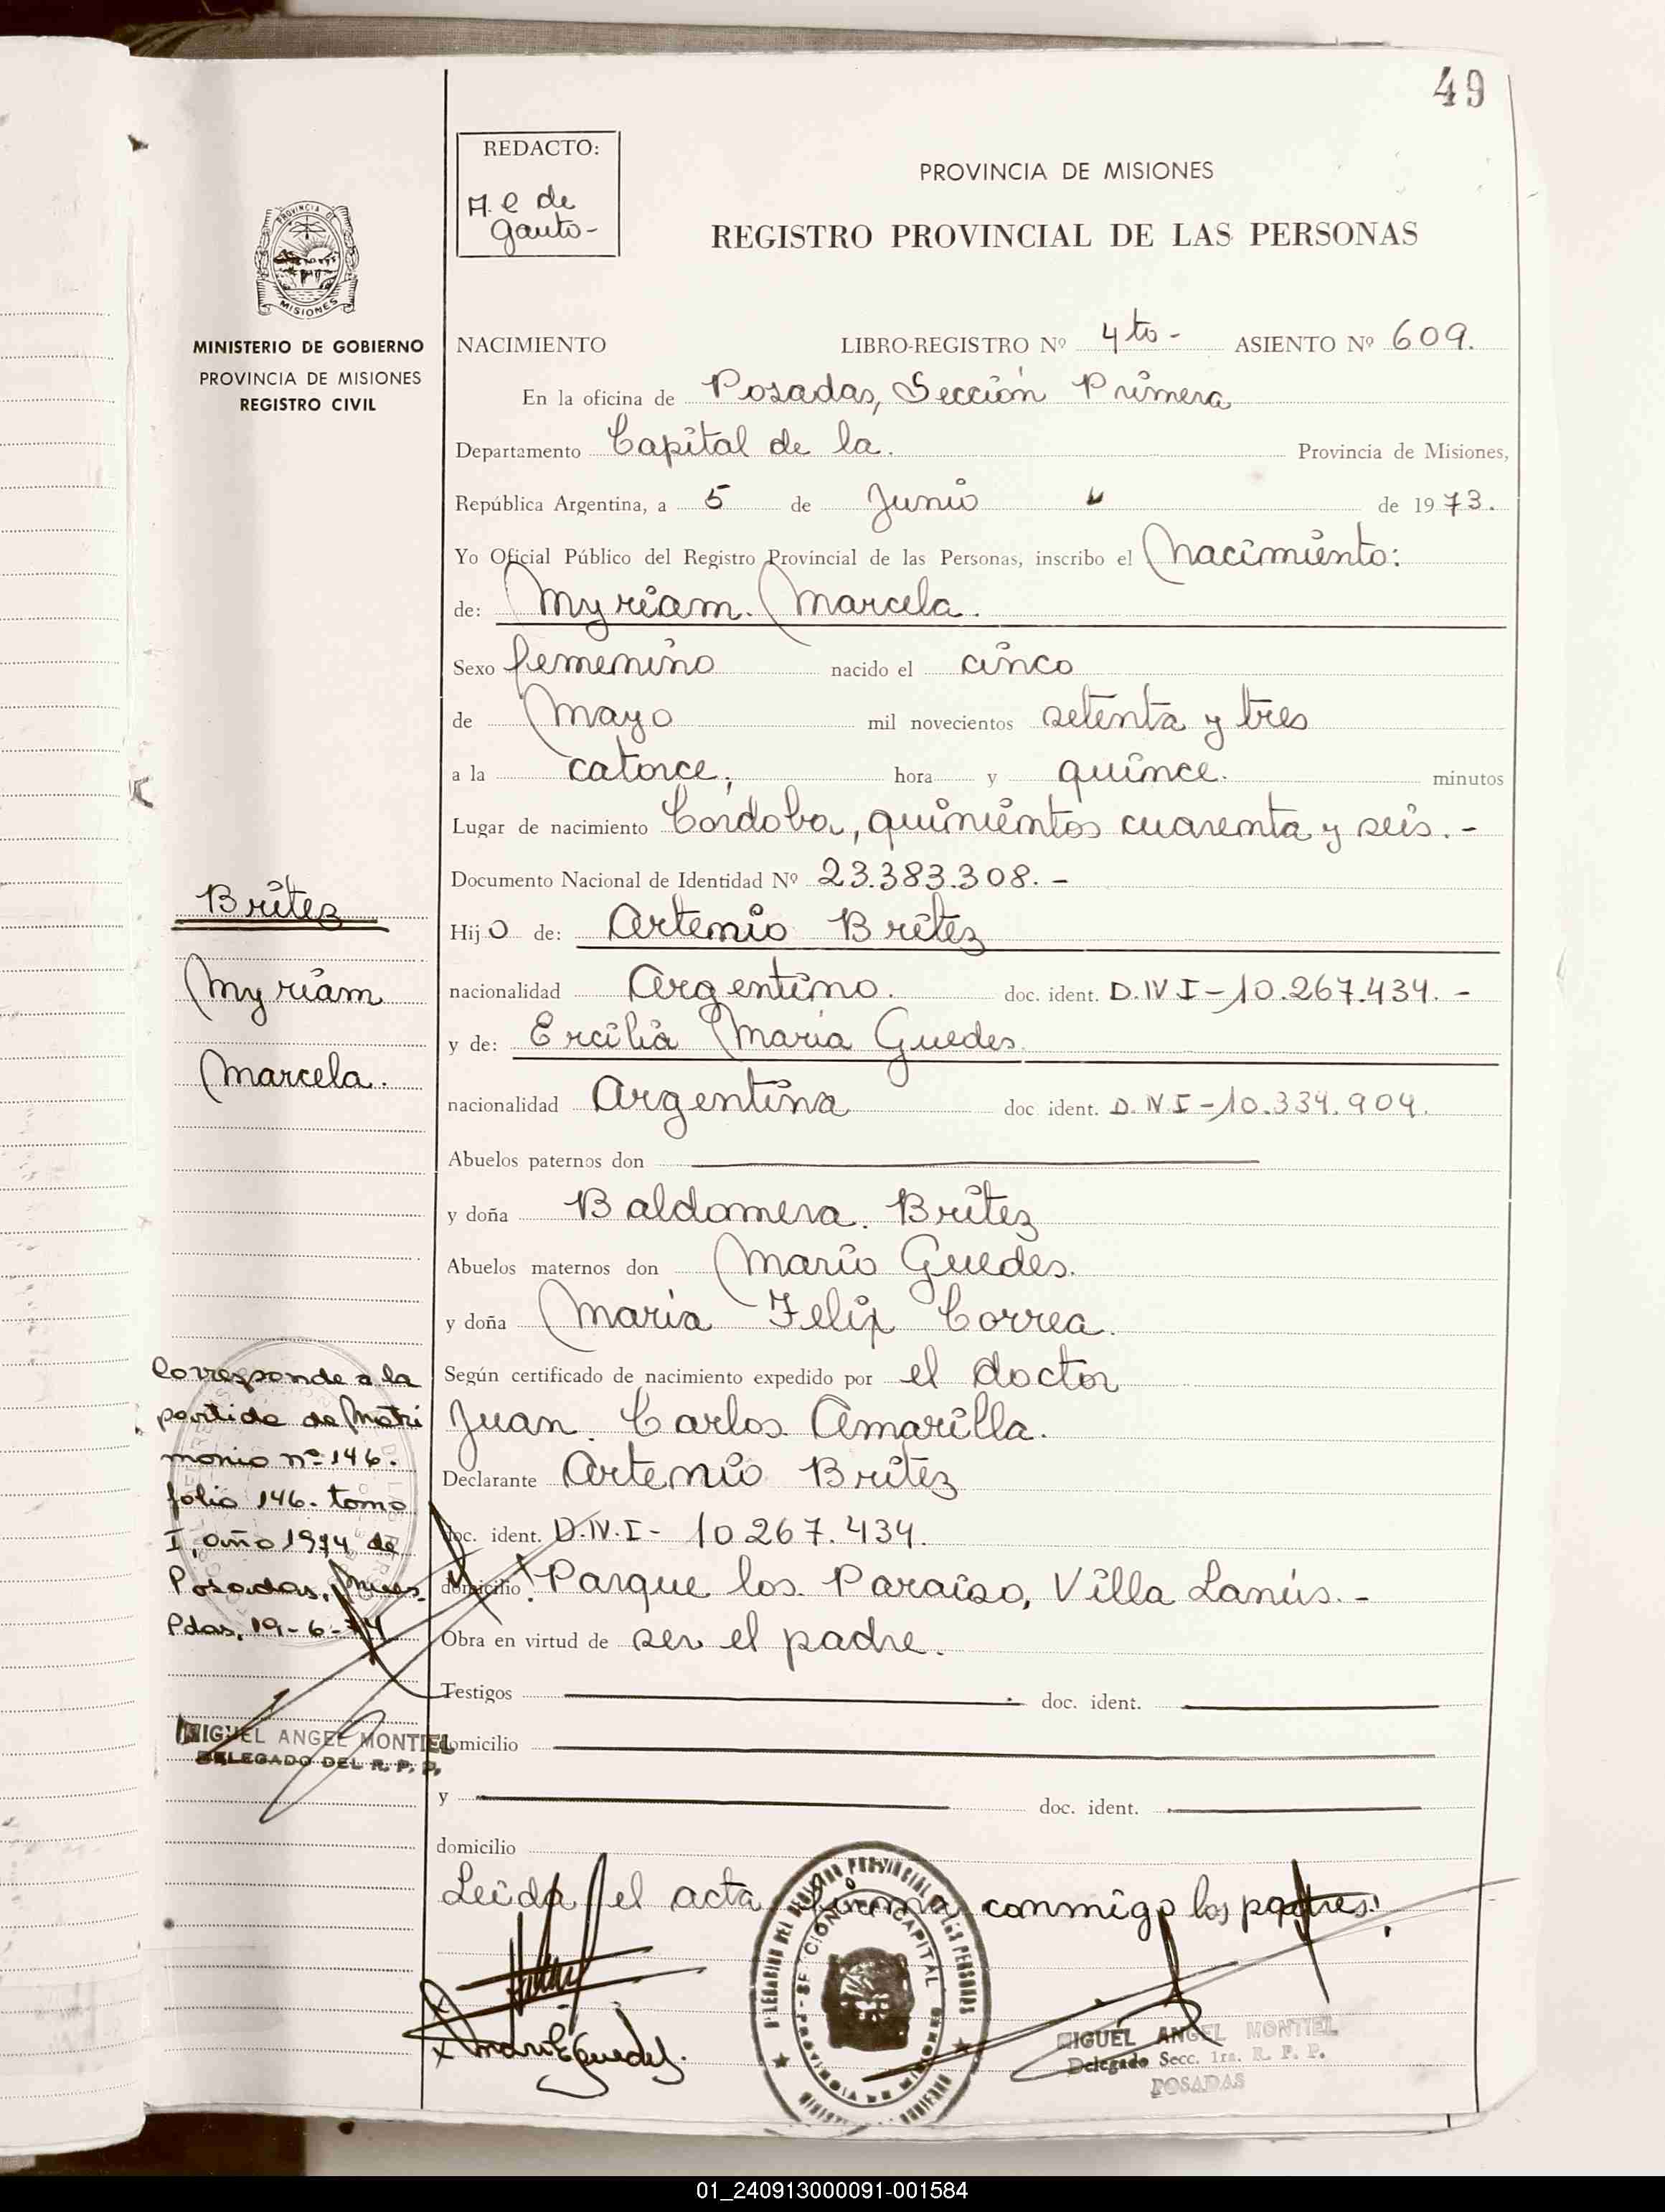 49
REDACTO:
M. e de
Gauto-
PROVINCIA DE MISIONES
REGISTRO PROVINCIAL DE LAS PERSONAS
PROVINCIA DE
MISIONES
MINISTERIO DE GOBIERNO
PROVINCIA DE MISIONES
REGISTRO CIVIL
NACIMIENTO LIBRO-REGISTRO Nº 4to- ASIENTO Nº 609.
En la oficina de Posadas, Sección Primera
Departamento Capital de la. Provincia de Misiones,
República Argentina, a 5 de Junio de 1973.
Yo Oficial Público del Registro Provincial de las Personas, inscribo el Nacimiento:
de: Myriam. Marcela.
Sexo femenino nacido el cinco
de Mayo mil novecientos setenta y tres
a la catorce; hora y quince. minutos
Lugar de nacimiento Cordoba, quinientos cuarenta y seis.-
Documento Nacional de Identidad Nº 23.383.308.-
Hijo de: Artemio Britez
nacionalidad Argentino. doc. ident. D.N I-10.267.434.-
y de: Ercilia Maria Guedes
nacionalidad Argentina doc ident. D.N.I-10.334.904.
Abuelos paternos don
y doña Baldomera. Britez
Abuelos maternos don Mario Guedes.
y doña Maria Felix Correa.
Según certificado de nacimiento expedido por el doctor
Juan. Carlos Amarilla.
Declarante Artemio Britez
doc. ident. D.N.I- 10.267.434.
domicilio! Parque los Paraiso, Villa Lanús.-
Obra en virtud de ser el padre.
Testigos doc. ident.
domicilio
y doc. ident.
domicilio
Leida el acta firma conmigo los padres!
Britez
Myriam
Marcela.
Corresponde a la
partida de Matri
monio nº 146.
folio 146. tomo
I, año 1974 de
Posadas, Mnes.
Pdas, 19-6-74
MIGUEL ANGEL MONTIEL
DELEGADO DEL R. P. P.
MIGUEL ANGEL MONTIEL
Delegado Secc. 1ra. R. P. P.
POSADAS
01_240913000091-001584